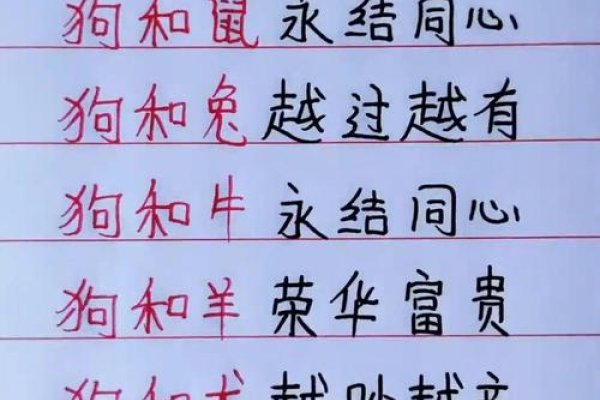 狗和鼠 永结同心
狗和兔 越过越有
狗和牛 永结同心
狗和羊 荣华富贵
狗和龙 越吵越